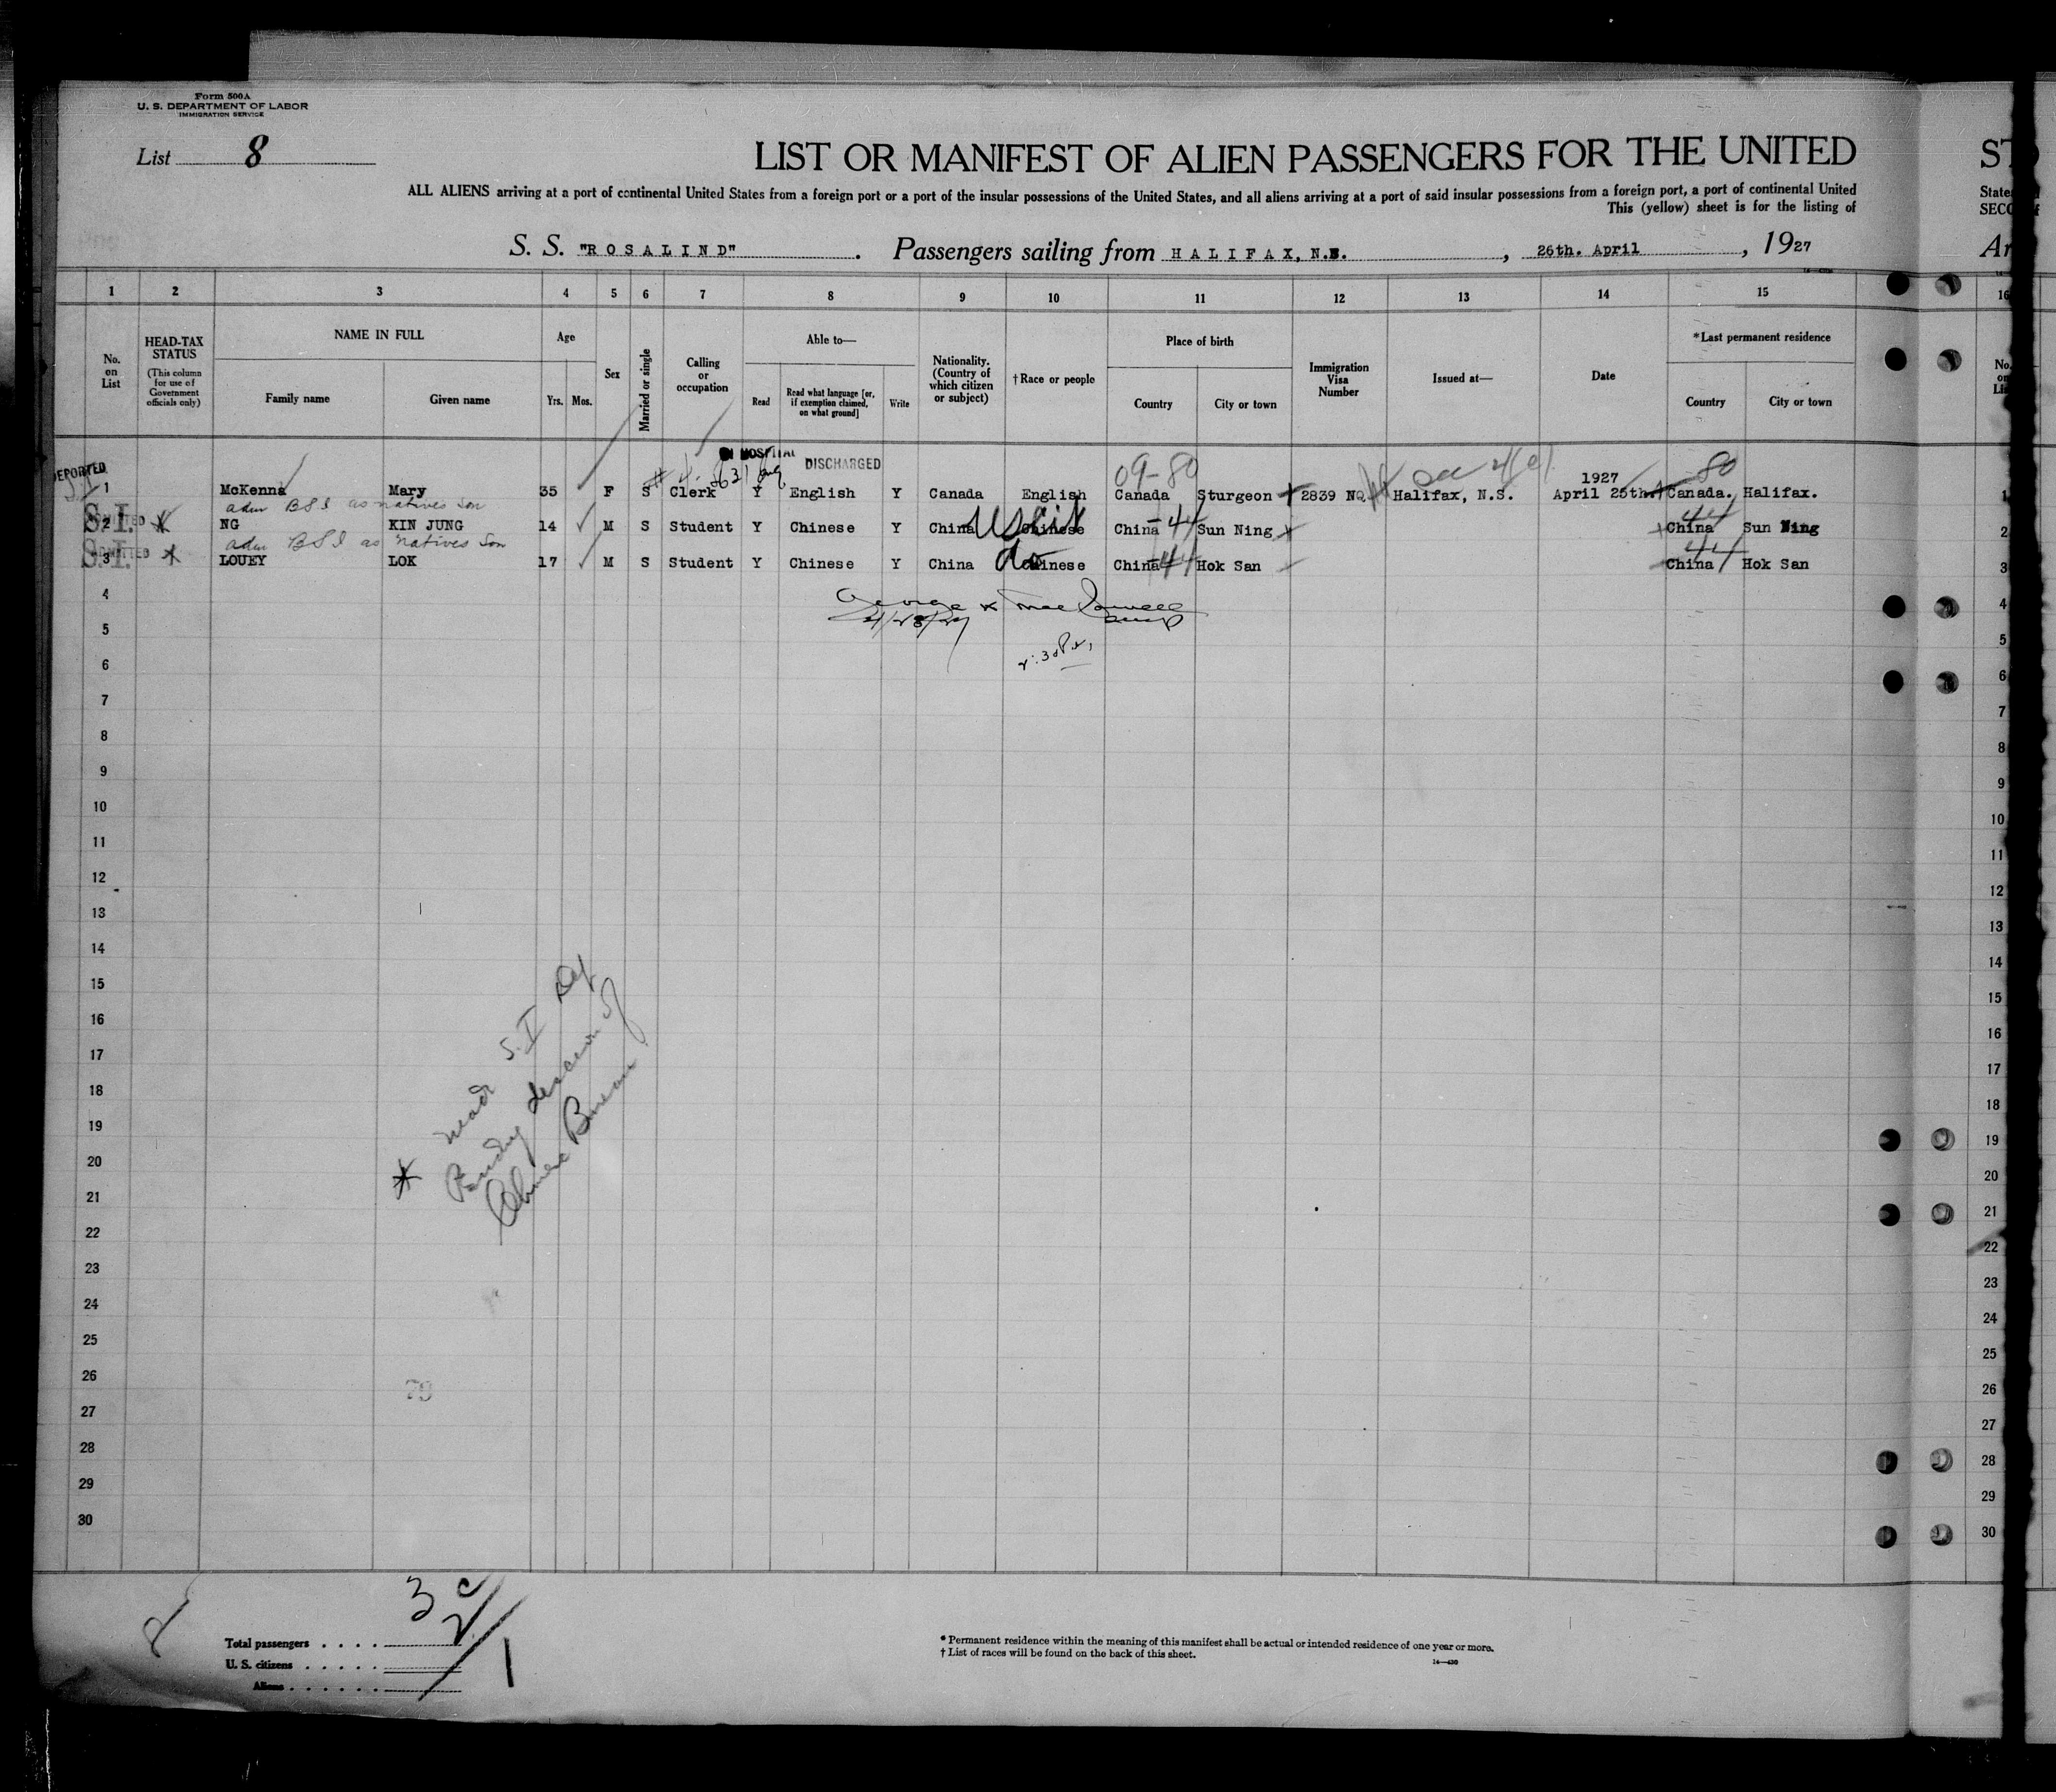 Form 500A
U. S. DEPARTMENT OF LABOR
IMMIGRATION SERVICE
List 8
LIST OR MANIFEST OF ALIEN PASSENGERS FOR THE UNITED
ALL ALIENS arriving at a port of continental United States from a foreign port or a port of the insular possessions of the United States, and all aliens arriving at a port of said insular possessions from a foreign port, a port of continental United
This (yellow) sheet is for the listing of
S. S. "ROSALIND". Passengers sailing from HALIFAX, N.S., 26th. April, 1927
1 2 3 4 5 6 7 8 9 10 11 12 13 14 15
No. on List
HEAD-TAX STATUS (This column for use of Government officials only)
NAME IN FULL
Family name Given name
Age
Yrs. Mos.
Sex
Married or single
Calling or occupation
Able to—
Read Read what language [or, if exemption claimed, on what ground] Write
Nationality. (Country of which citizen or subject)
†Race or people
Place of birth
Country City or town
Immigration Visa Number
Issued at—
Date
*Last permanent residence
Country City or town
DEPORTED
IN HOSPITAL DISCHARGED
09-80
80
1927
1 McKenna Mary 35 F S Clerk Y English Y Canada English Canada Sturgeon 2839 NQ. Halifax, N.S. April 25th. Canada. Halifax.
adm BSI as natives son
S.I. ADMITTED 2 NG KIN JUNG 14 M S Student Y Chinese Y China Chinese USCit China -44 Sun Ning China 44 Sun Ning
adm BSI as natives son
S.I. ADMITTED 3 LOUEY LOK 17 M S Student Y Chinese Y China Chinese do China -44 Hok San China 44 Hok San
4
George
4/28/27
5
6
7
8
9
10
11
12
13
14
15
16
17
18
19
20
21
22
23
24
25
26
27
28
29
30
* held S.I.
Pending decision of
Chinese Bureau
79
3 C
2
1
Total passengers
U. S. citizens
Aliens
* Permanent residence within the meaning of this manifest shall be actual or intended residence of one year or more.
† List of races will be found on the back of this sheet.
14—430
ST
State
SECO
Ar
16
No. on Li
1
2
3
4
5
6
7
8
9
10
11
12
13
14
15
16
17
18
19
20
21
22
23
24
25
26
27
28
29
30